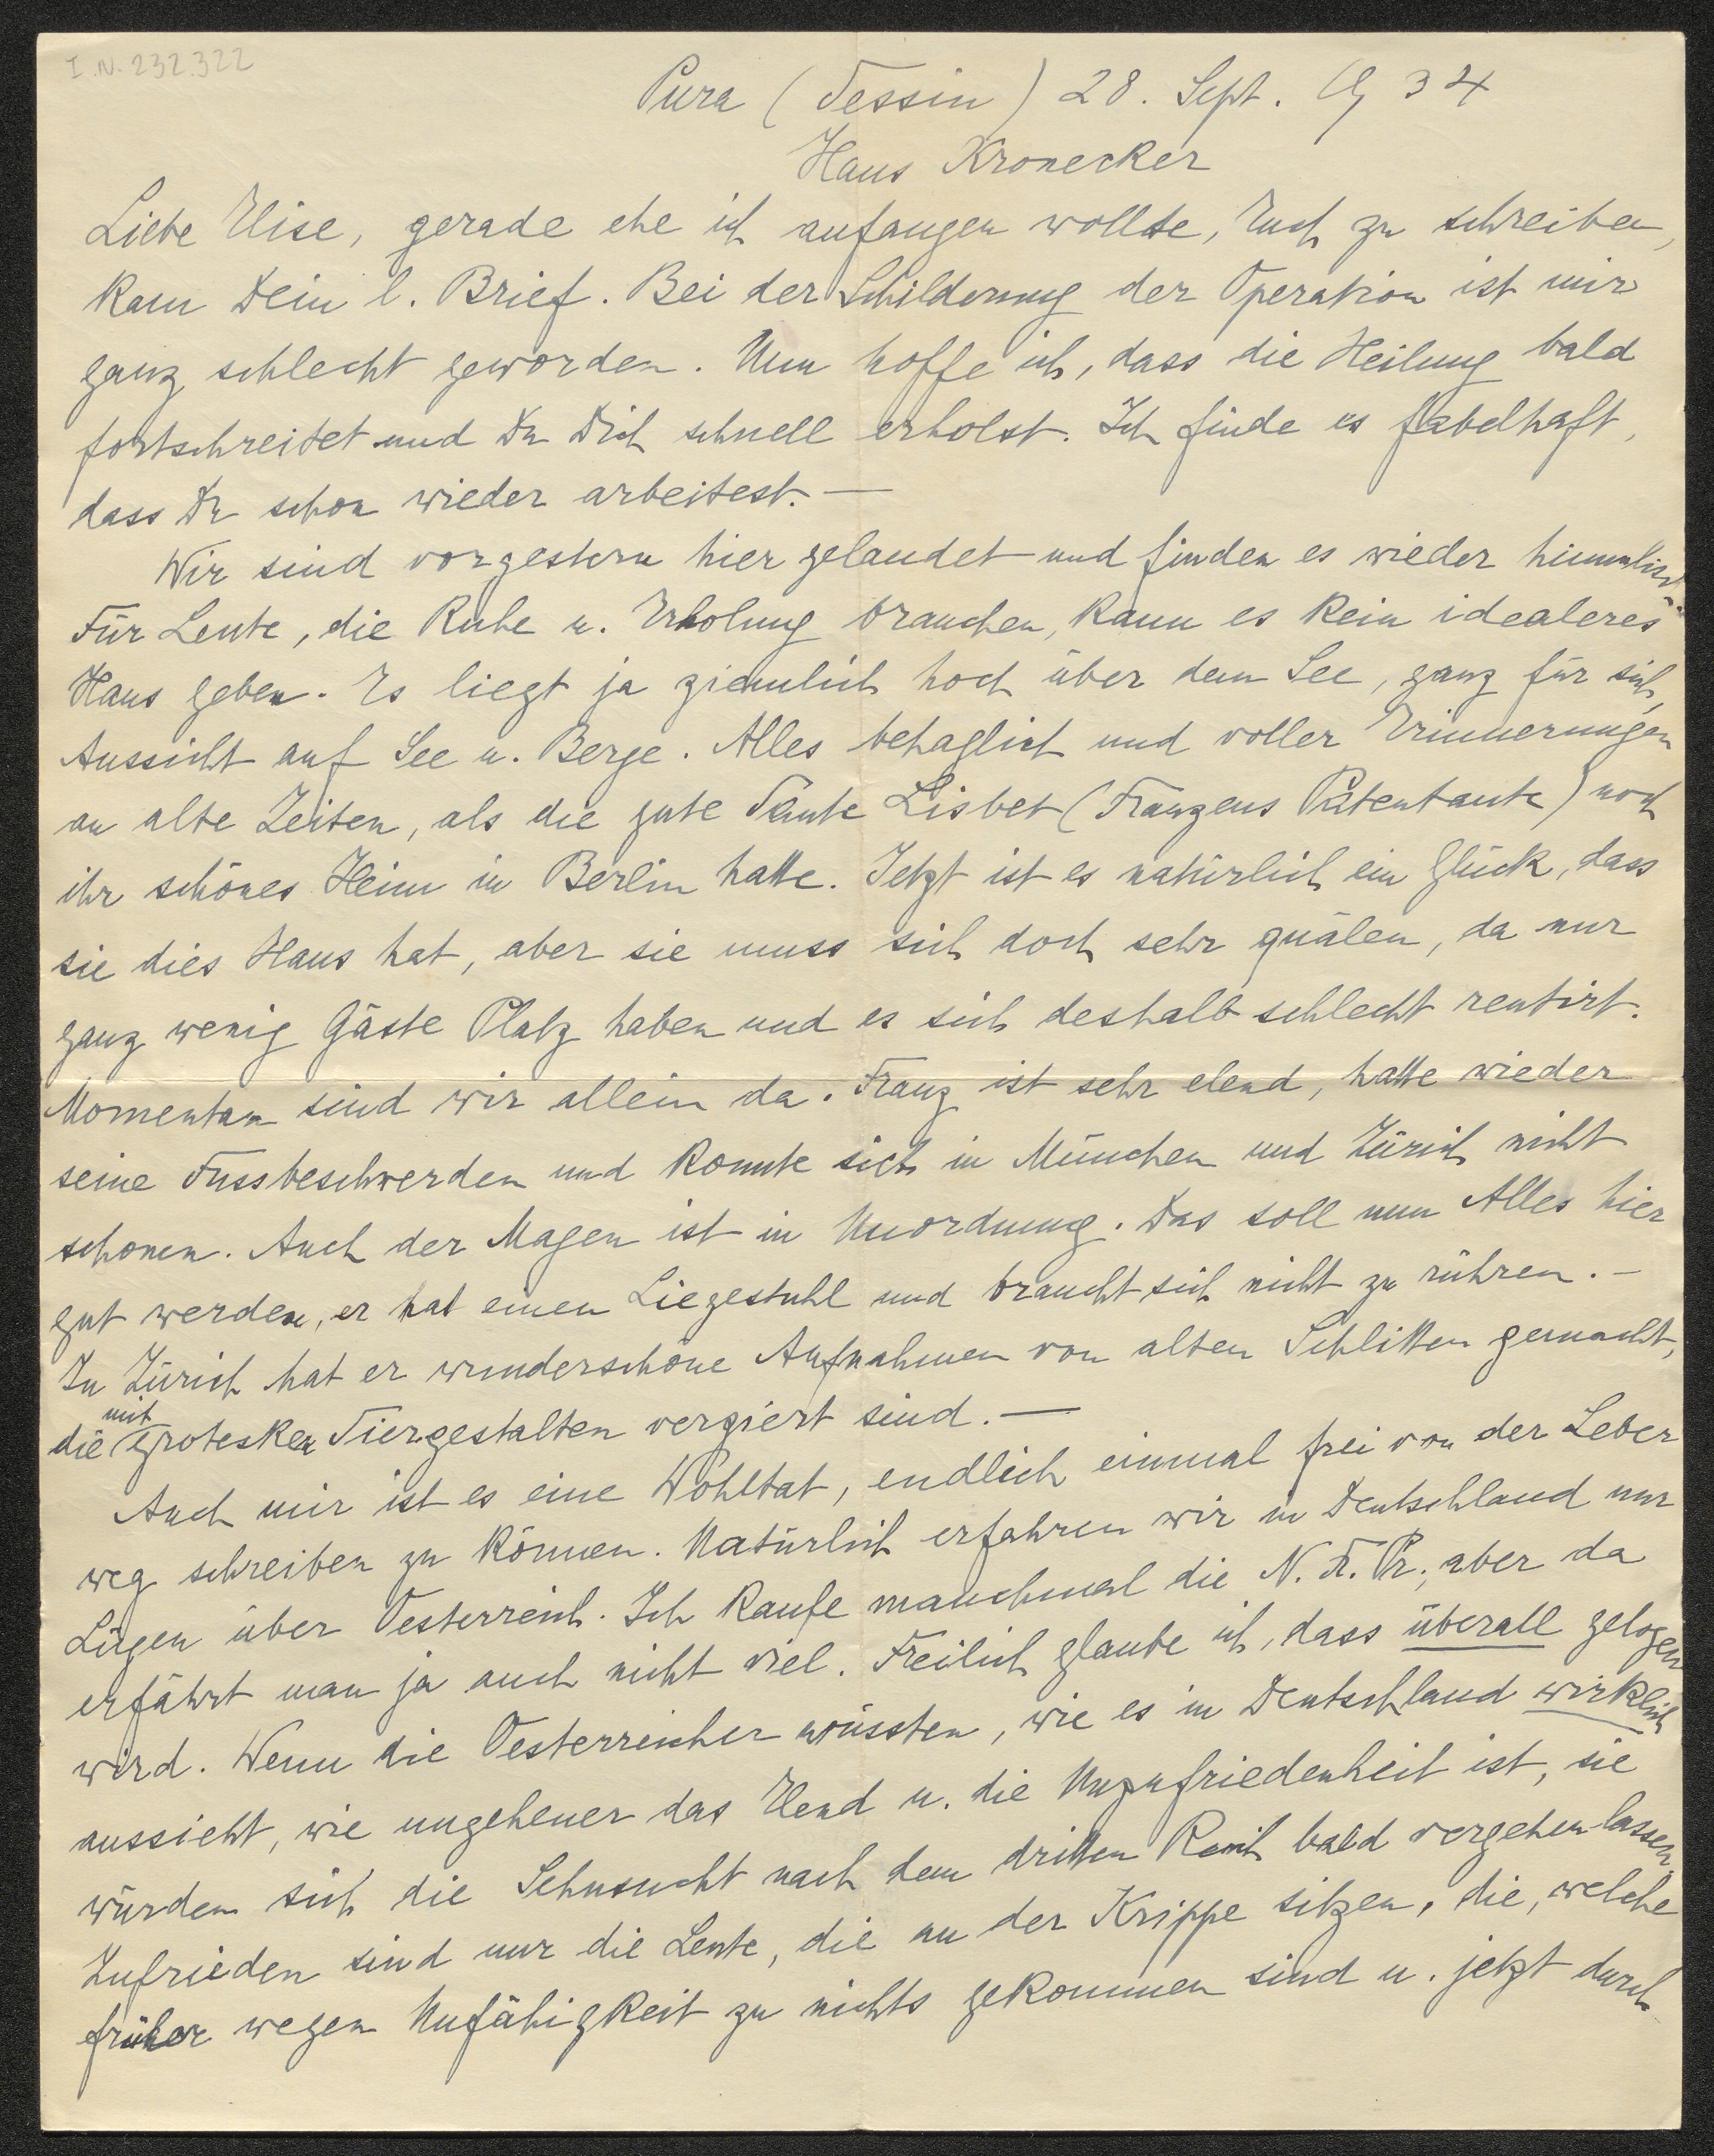 I.N. 232.322
Pura (Tessin) 28. Sept. 1934
Haus Kronecker
Liebe Elise, gerade ehe ich anfangen wollte, Euch zu schreiben,
kam Dein l. Brief. Bei der Schilderung der Operation ist mir
ganz schlecht geworden. Nun hoffe ich, dass die Heilung bald
fortschreitet und Du Dich schnell erholst. Ich finde es fabelhaft,
dass Du schon wieder arbeitest. —
Wir sind vorgestern hier gelandet und finden es wieder himmlisch.
Für Leute, die Ruhe u. Erholung brauchen, kann es kein idealeres
Haus geben. Es liegt ja ziemlich hoch über dem See, ganz für sich,
Aussicht auf See u. Berge. Alles behaglich und voller Erinnerungen
an alte Zeiten, als die gute Tante Lisbet (Franzens Patentante) noch
ihr schönes Heim in Berlin hatte. Jetzt ist es natürlich ein Glück, dass
sie dies Haus hat, aber sie muss sich doch sehr quälen, da nur
ganz wenig Gäste Platz haben und es sich deshalb schlecht rentirt.
Momentan sind wir allein da. Franz ist sehr elend, hatte wieder
seine Fussbeschwerden und konnte sich in München und Zürich nicht
schonen. Auch der Magen ist in Unordnung. Das soll nun Alles hier
gut werden, er hat einen Liegestuhl und braucht sich nicht zu rühren. –
In Zürich hat er wunderschöne Aufnahmen von alten Schlitten gemacht,
die mit grotesken Tiergestalten verziert sind. —
Auch mir ist es eine Wohltat, endlich einmal frei von der Leber
weg schreiben zu können. Natürlich erfahren wir in Deutschland nur
Lügen über Oesterreich. Ich kaufe manchmal die N. Fr. Pr., aber da
erfährt man ja auch nicht viel. Freilich glaube ich, dass überall gelogen
wird. Wenn die Oesterreicher wüssten, wie es in Deutschland wirklich
aussieht, wie ungeheuer das Elend u. die Unzufriedenheit ist, sie
würden sich die Sehnsucht nach dem dritten Reich bald vergehen lassen.
Zufrieden sind nur die Leute, die an der Krippe sitzen, die, welche
früher wegen Unfähigkeit zu nichts gekommen sind u. jetzt durch